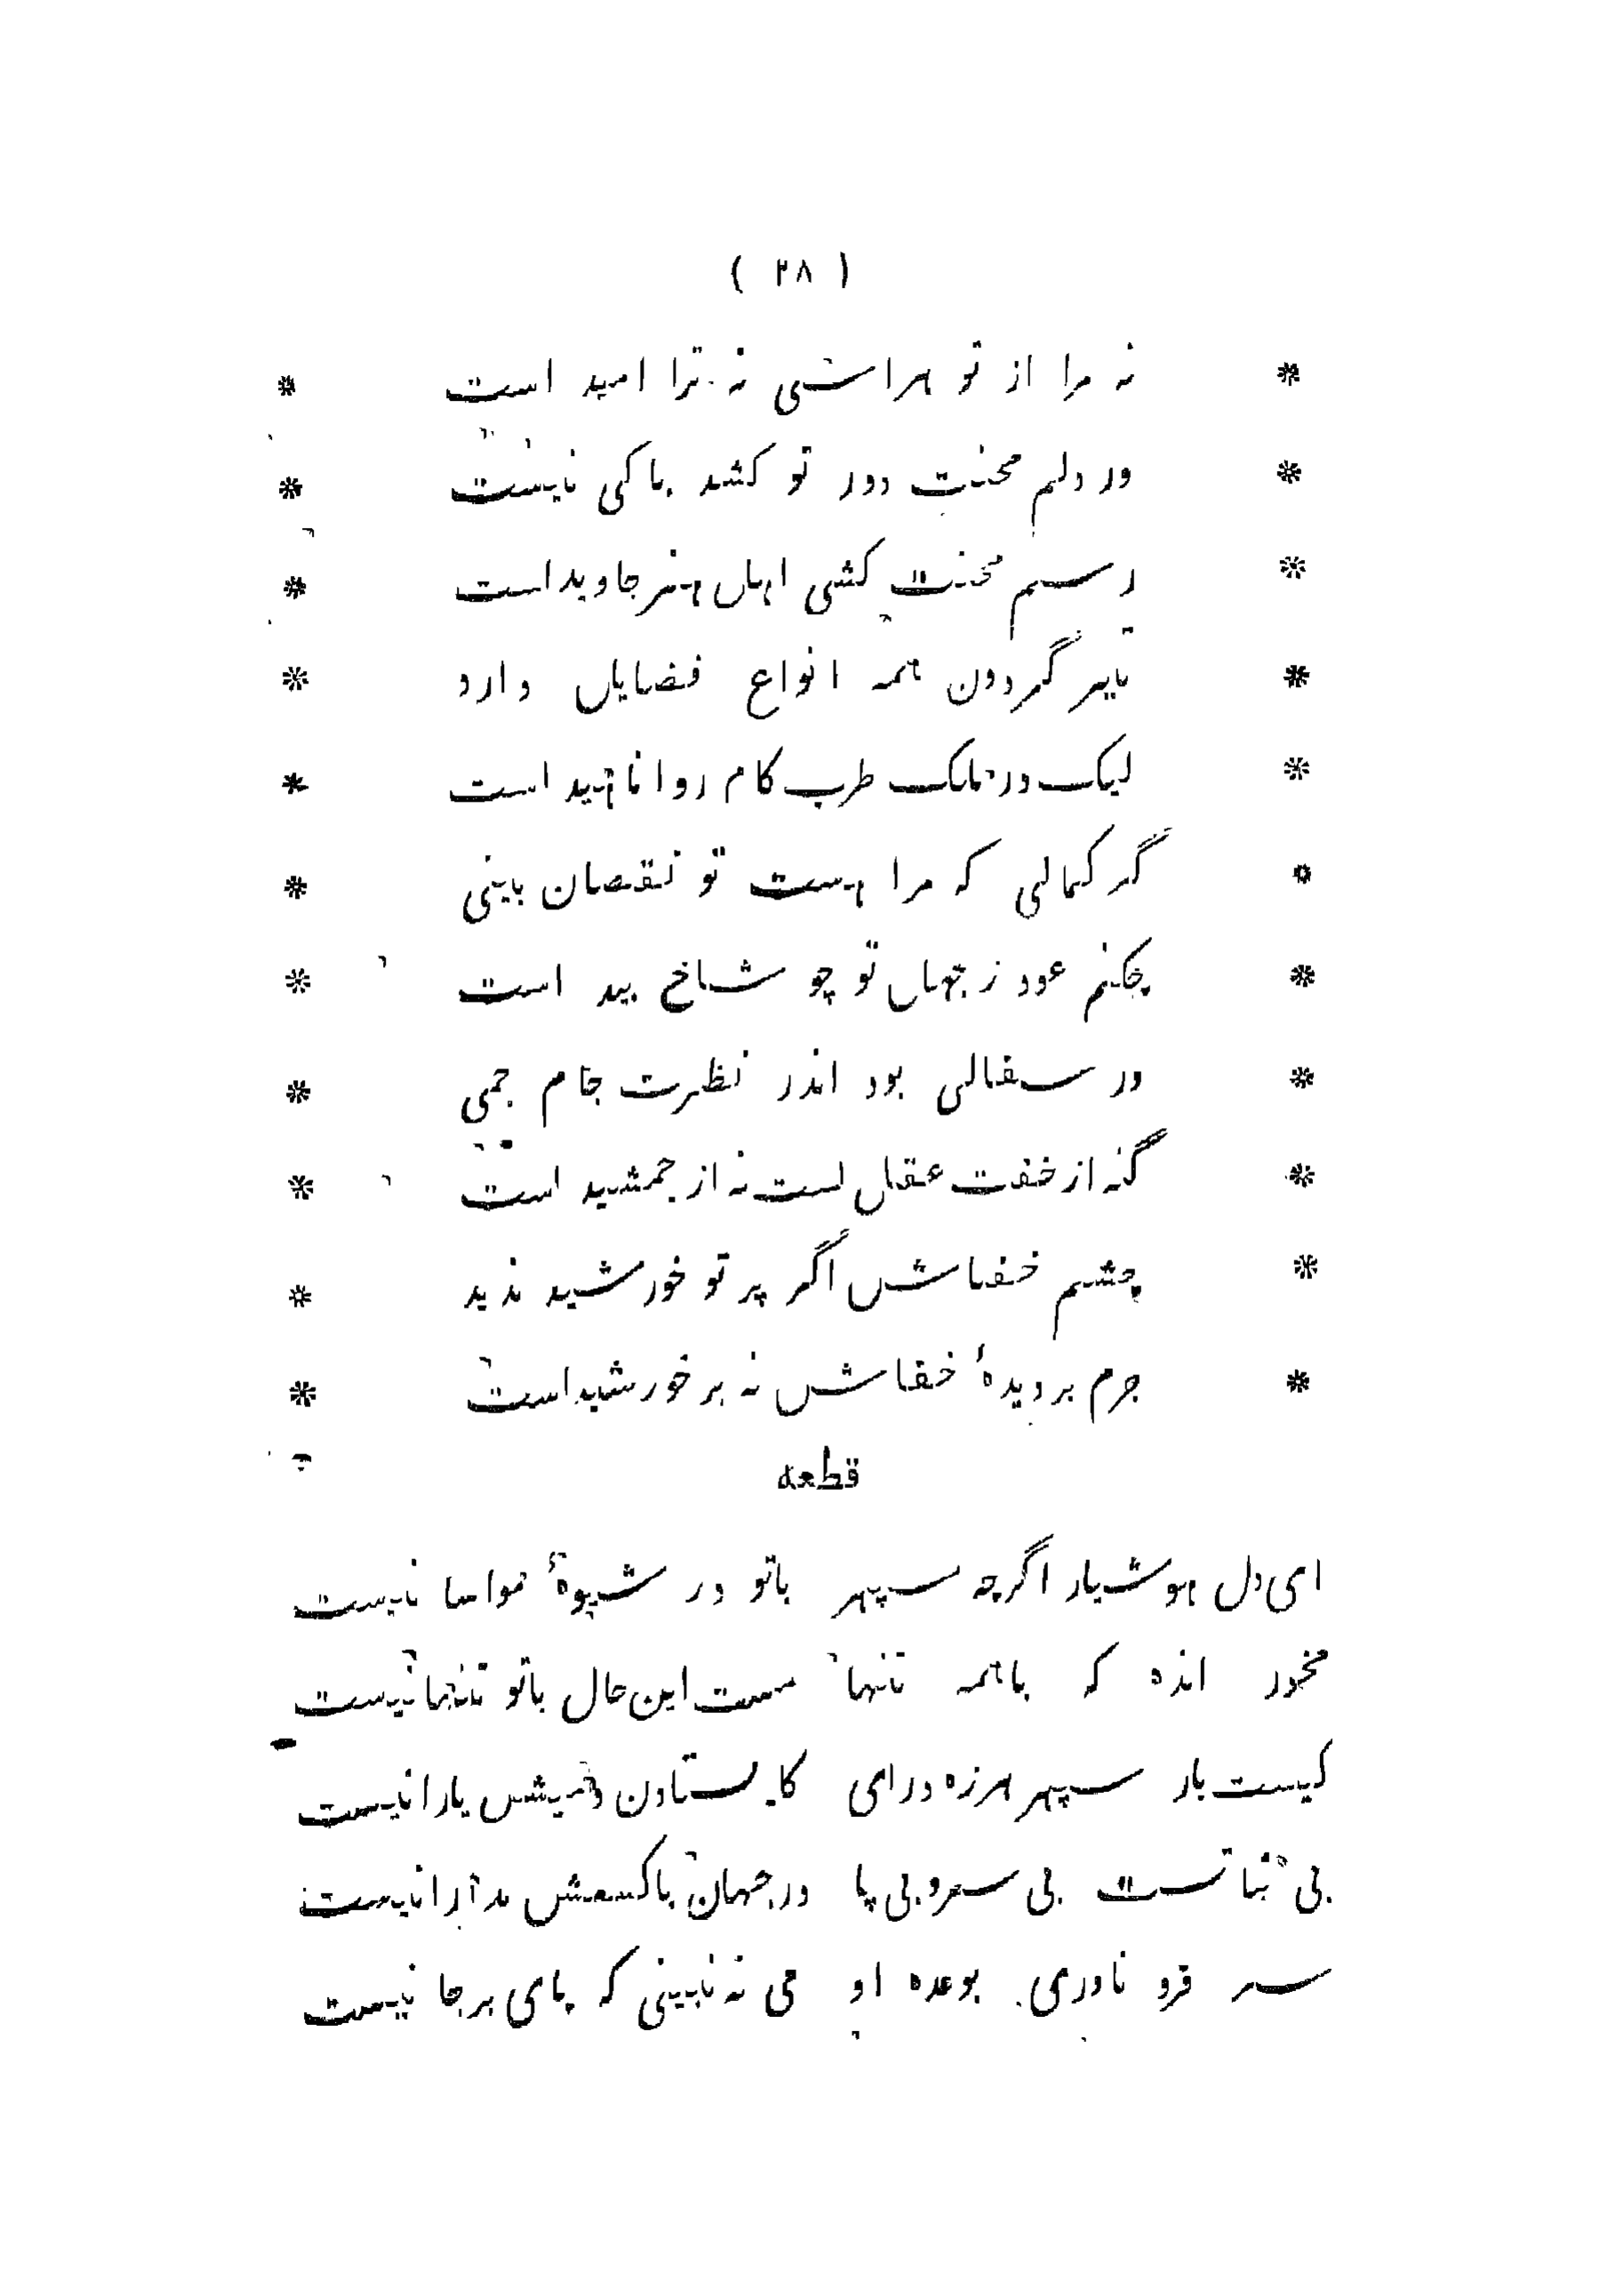 ( ۲۸ )
* نه مرا از تو هراسی نه ترا امید است *
* ور دلم محنت دور تو کشد باکی نیست *
* رسم محنت کشی اهل هنر جاوید است *
* تیر گردون همه انواع فضایل دارد *
* لیک در ملک طرب کام روا ناهید است *
* گر کمالی که مرا هست تو نقصان بینی *
* چکنم عود ز جهل تو چو شاخ بید است *
* ور سفالی بود اندر نظرت جام جمی *
* گنه از خفت عقل است نه از جمشید است *
* چشم خفاش اگر پرتو خورشید ندید *
* جرم بر دیدهٔ خفاش نه بر خورشید است *
قطعه
ای دل هوشیار اگرچه سپهر باتو در شیوهٔ مواسا نیست
مخور انده که باهمه تنها مست این حال باتو تنها نیست
کیست یار سپهر هرزه درای کایستادن پیش یارا نیست
بی ثبات است بی سر و بی پا در جهان باکسش مدارا نیست
سر فرو ناوری بوعده او می نه نبینی که پای برجا نیست